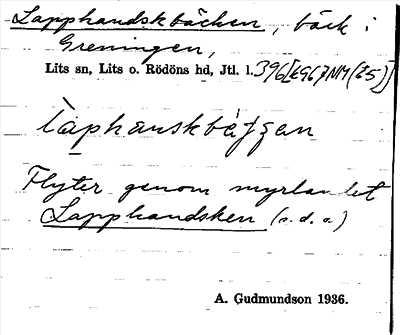 Lapphandskbäcken, bäck i
Greningen,
Lits sn, Lits o. Rödöns hd, Jtl. l. 396
Flyter genom myrlandet
Lapphandsken (s.d.o.)
A. Gudmundson 1936.